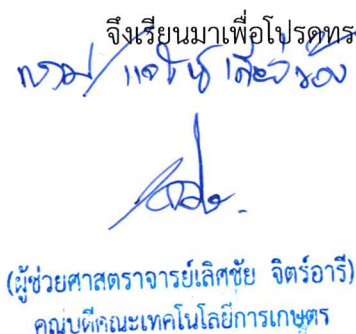 จึงเรียนมาเพื่อโปรดทร
ทราบ / แจ้งผู้เกี่ยวข้อง
(ผู้ช่วยศาสตราจารย์เลิศชัย จิตร์อารี)
คณบดีคณะเทคโนโลยีการเกษตร